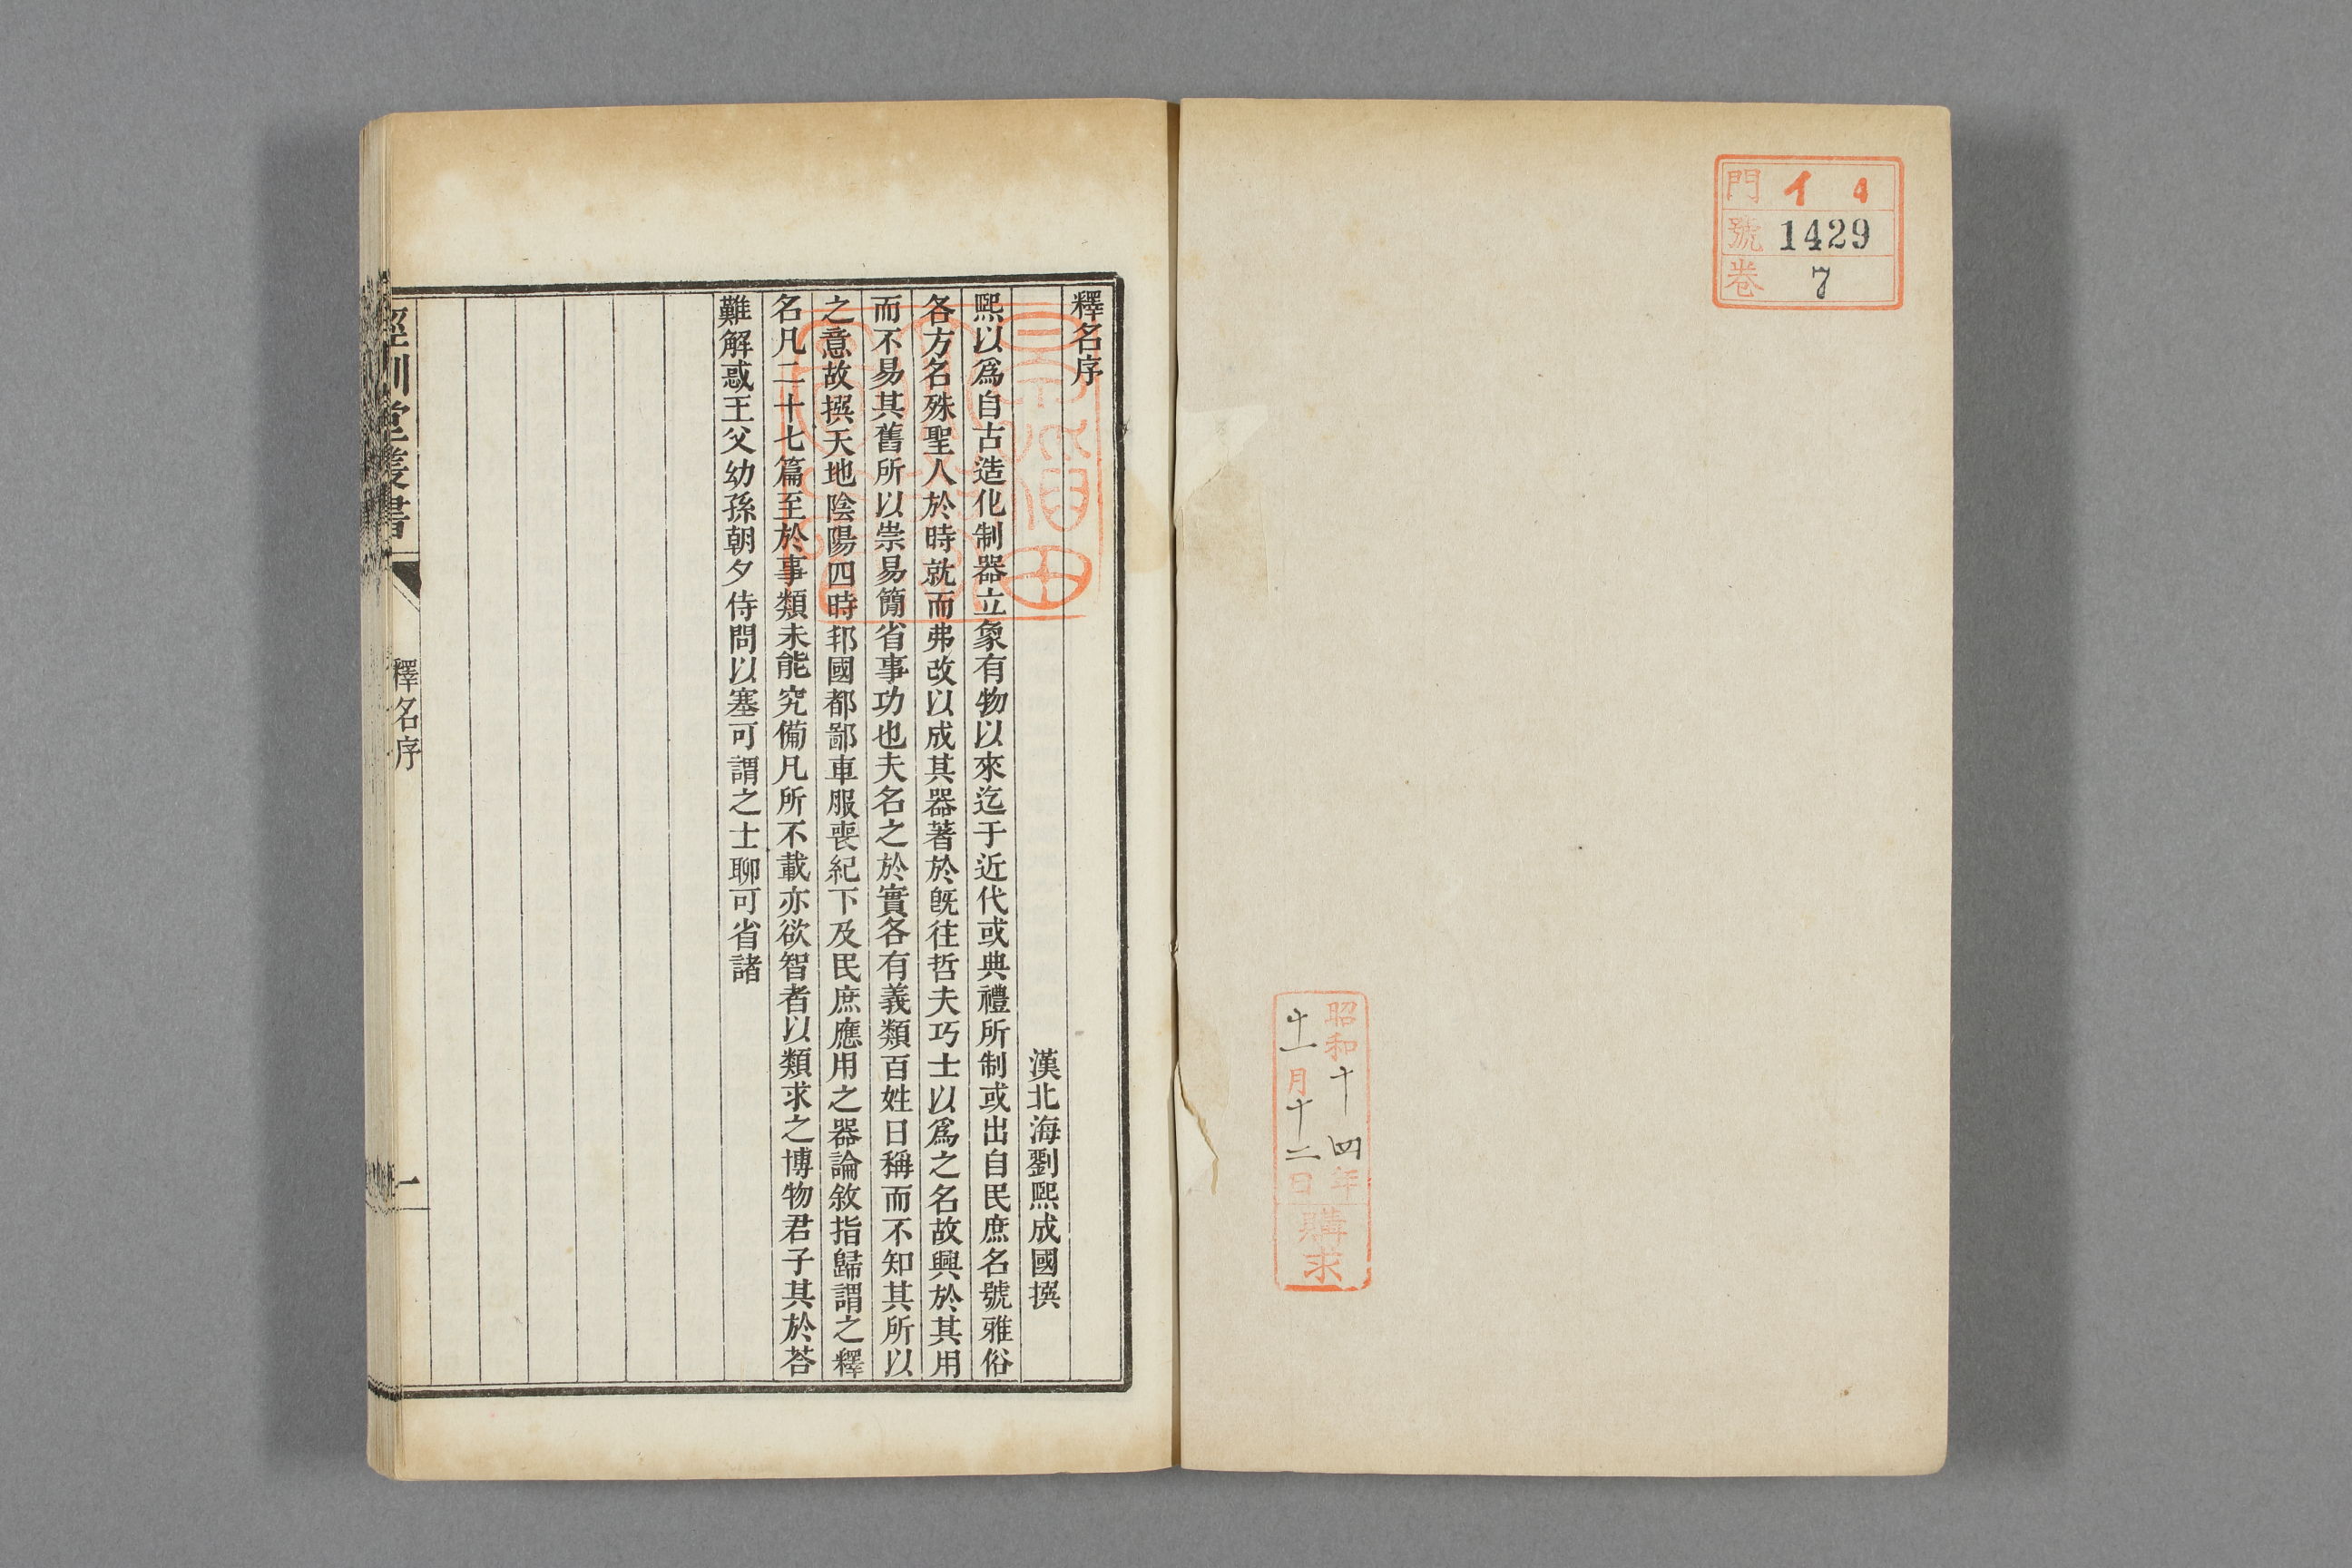 門 イ 4
號 1429
卷 7
昭和十四年
十一月十二日
購求
釋名序
漢北海劉熙成國撰
熙以爲自古造化制器立象有物以來迄于近代或典禮所制或出自民庶名號雅俗
各方名殊聖人於時就而弗改以成其器著於旣往哲夫巧士以爲之名故興於其用
而不易其舊所以崇易簡省事功也夫名之於實各有義類百姓日稱而不知其所以
之意故撰天地陰陽四時邦國都鄙車服喪紀下及民庶應用之器論敘指歸謂之釋
名凡二十七篇至於事類未能究備凡所不載亦欲智者以類求之博物君子其於荅
難解惑王父幼孫朝夕侍問以塞可謂之士聊可省諸
經訓堂叢書
釋名序
一